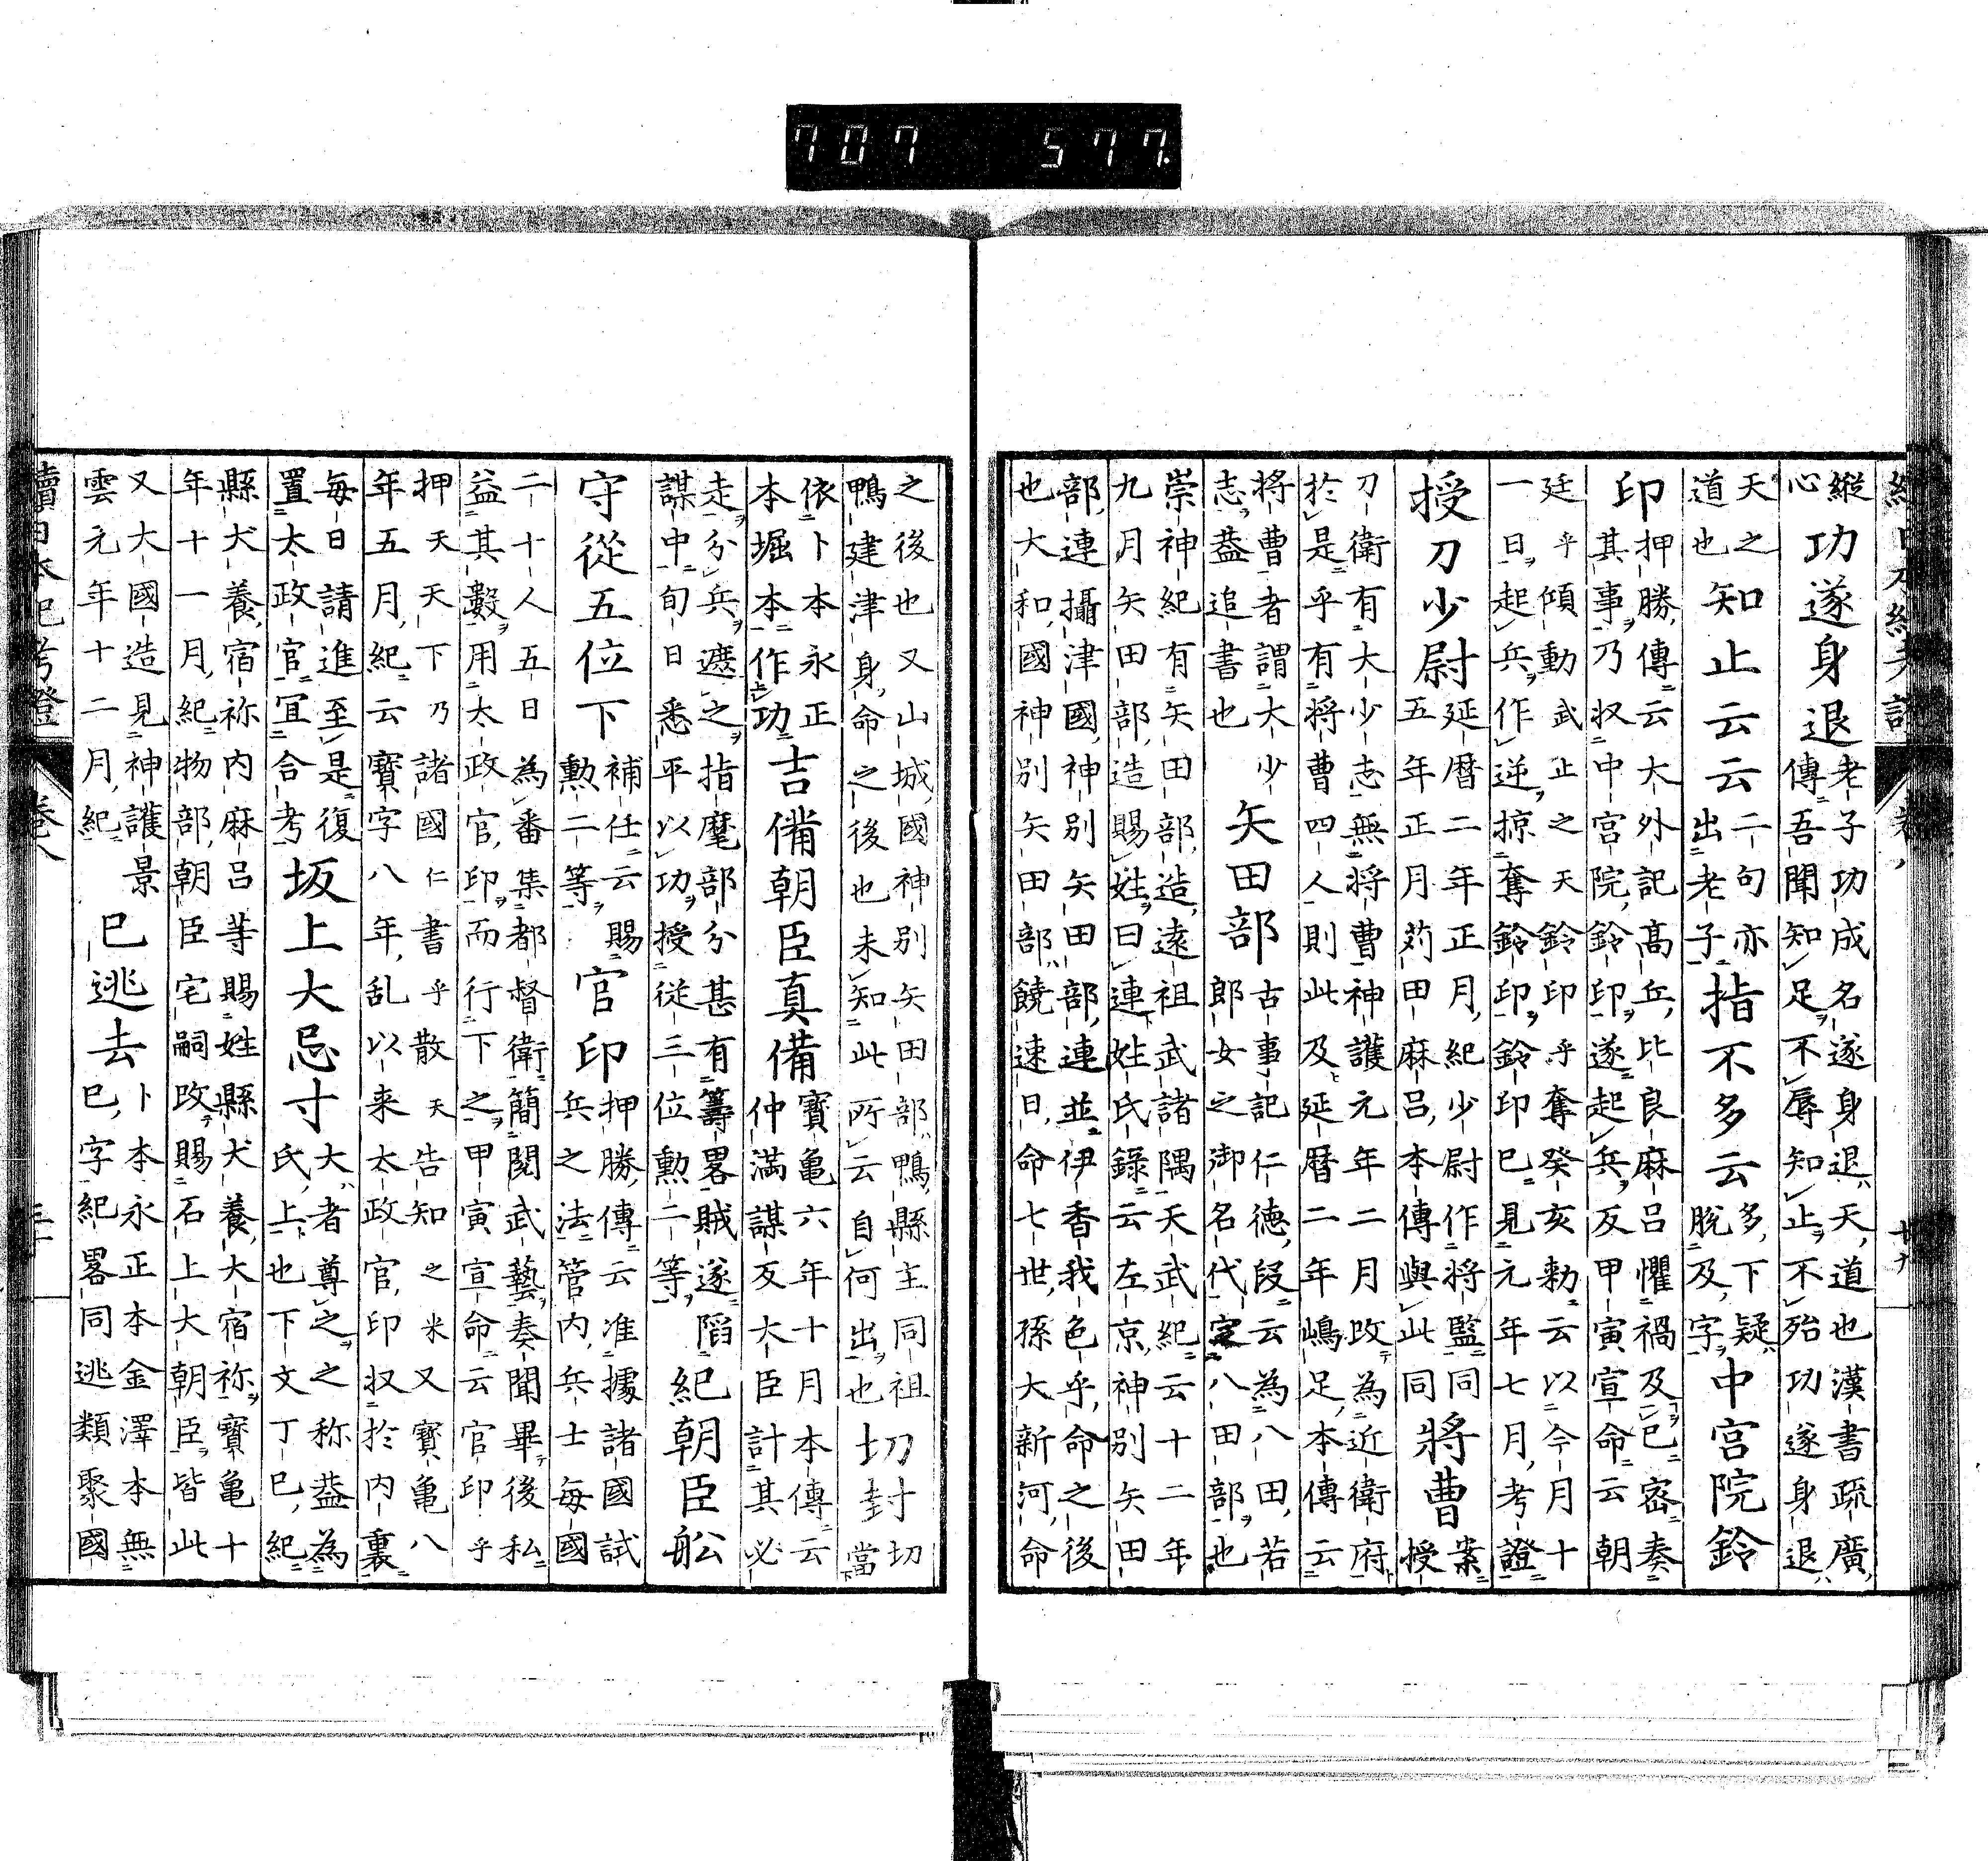 707 577.
縦
心
功遂身退
老子功成名遂身退天道也漢書疏廣
傳吾聞知足不辱知止不殆功遂身退
天之
道也
知止云云
二句亦
出老子
指不多云
多下疑
脱及字
中宮院鈴
印
押勝傳云大外記高丘比良麻呂懼禍及已密奏
其事乃収中宮院鈴印遂起兵反甲寅宣命云朝
廷乎傾動武止之天鈴印乎奪癸亥勅云以今月十
一日起兵作逆掠奪鈴印鈴印已見元年七月考證
授刀少尉
延暦二年正月紀少尉作將監同
五年正月苅田麻呂本傳與此同
將曹
案
授
刀衛有大少志無將曹神護元年二月改為近衛府
於是乎有將曹四人則此及延暦二年嶋足本傳云
將曹者謂大少
志葢追書也
矢田部
古事記仁徳段云為八田若
郎女之御名代定八田部也
崇神紀有矢田部造遠祖武諸隅天武紀云十二年
九月矢田部造賜姓曰連姓氏録云左京神別矢田
部連攝津國神別矢田部連並伊香我色乎命之後
也大和國神別矢田部饒速日命七世孫大新河命
之後也又山城國神別矢田部鴨縣主同祖
鴨建津身命之後也未知此所云自何出也
切封
切
當
依卜本永正
本堀本作功
吉備朝臣真備
寳亀六年十月本傳云
仲満謀反大臣計其必
走分兵遮之指麾部分甚有籌畧賊遂䧟
謀中旬日悉平以功授従三位勲二等
紀朝臣舩
守從五位下
補任云賜
勲二等
官印
押勝傳云准據諸國試
兵之法管内兵士毎國
二十人五日為番集都督衛簡閲武藝奏聞畢後私
益其數用太政官印而行下之甲寅宣命云官印乎
押天天下乃諸國仁書乎散天告知之米又寳亀八
年五月紀云寳字八年乱以来太政官印収於内裏
毎日請進至是復
置太政官宜合考
坂上大忌寸
大者尊之之称葢為
氏上也下文丁巳紀
縣犬養宿祢内麻呂等賜姓縣犬養大宿祢寳亀十
年十一月紀物部朝臣宅嗣改賜石上大朝臣皆此
又大國造見神護景
雲元年十二月紀
巳逃去
卜本永正本金澤本無
巳字紀畧同逃類聚國
續日本紀考證
卷八